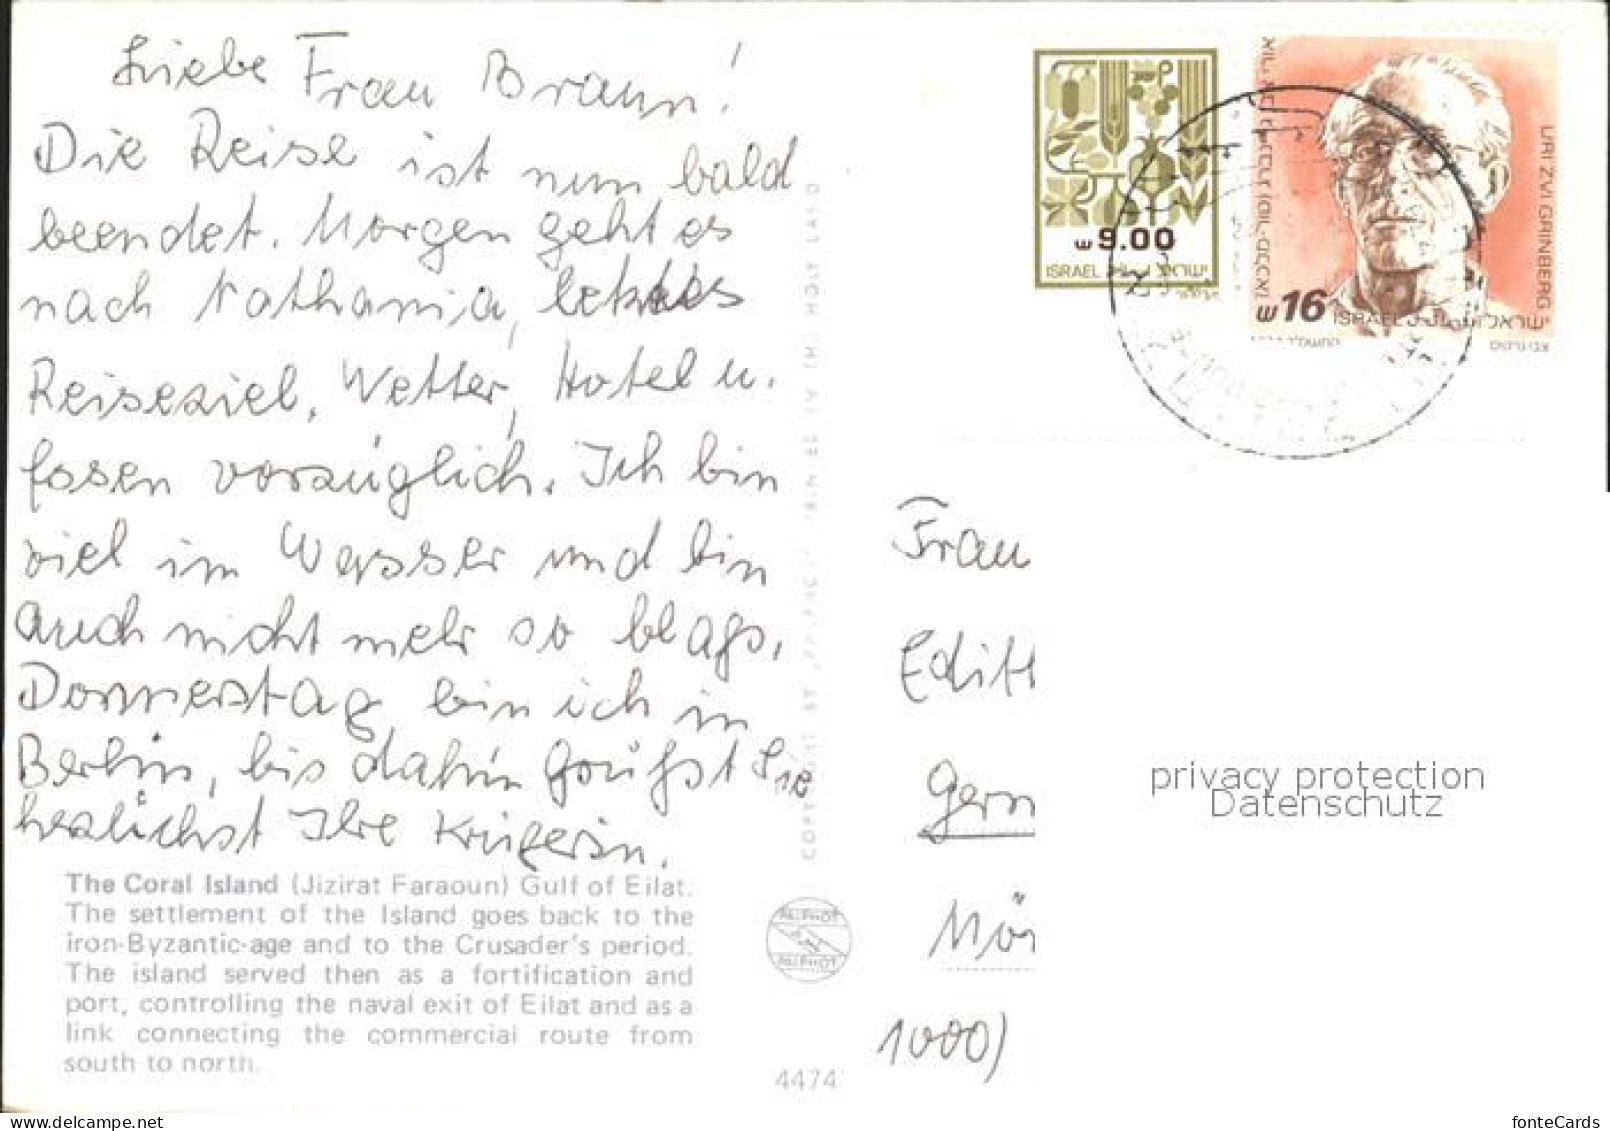 Liebe Frau Braun!
Die Reise ist nun bald
beendet. Morgen geht es
nach Nathania, letztes
Reiseziel, Wetter, Hotel u.
Essen vorzüglich. Ich bin
viel im Wasser und bin
auch nicht mehr so blass.
Donnerstag bin ich in
Berlin, bis dahin grüsst Sie
herzlichst Ihre Krügerin.
The Coral Island (Jizirat Faraoun) Gulf of Eilat.
The settlement of the Island goes back to the
iron-Byzantic-age and to the Crusader's period.
The island served then as a fortification and
port, controlling the naval exit of Eilat and as a
link connecting the commercial route from
south to north.
COPYRIGHT BY PALPHOT
HOLY LAND
PALPHOT
PALPHOT
4474
ש 9.00
ISRAEL ישראל
URI ZVI GRINBERG
ש 16
ISRAEL ישראל
Frau
Edith
Germ
Mör
1000)
privacy protection
Datenschutz
www.delcampe.net
fonteCards